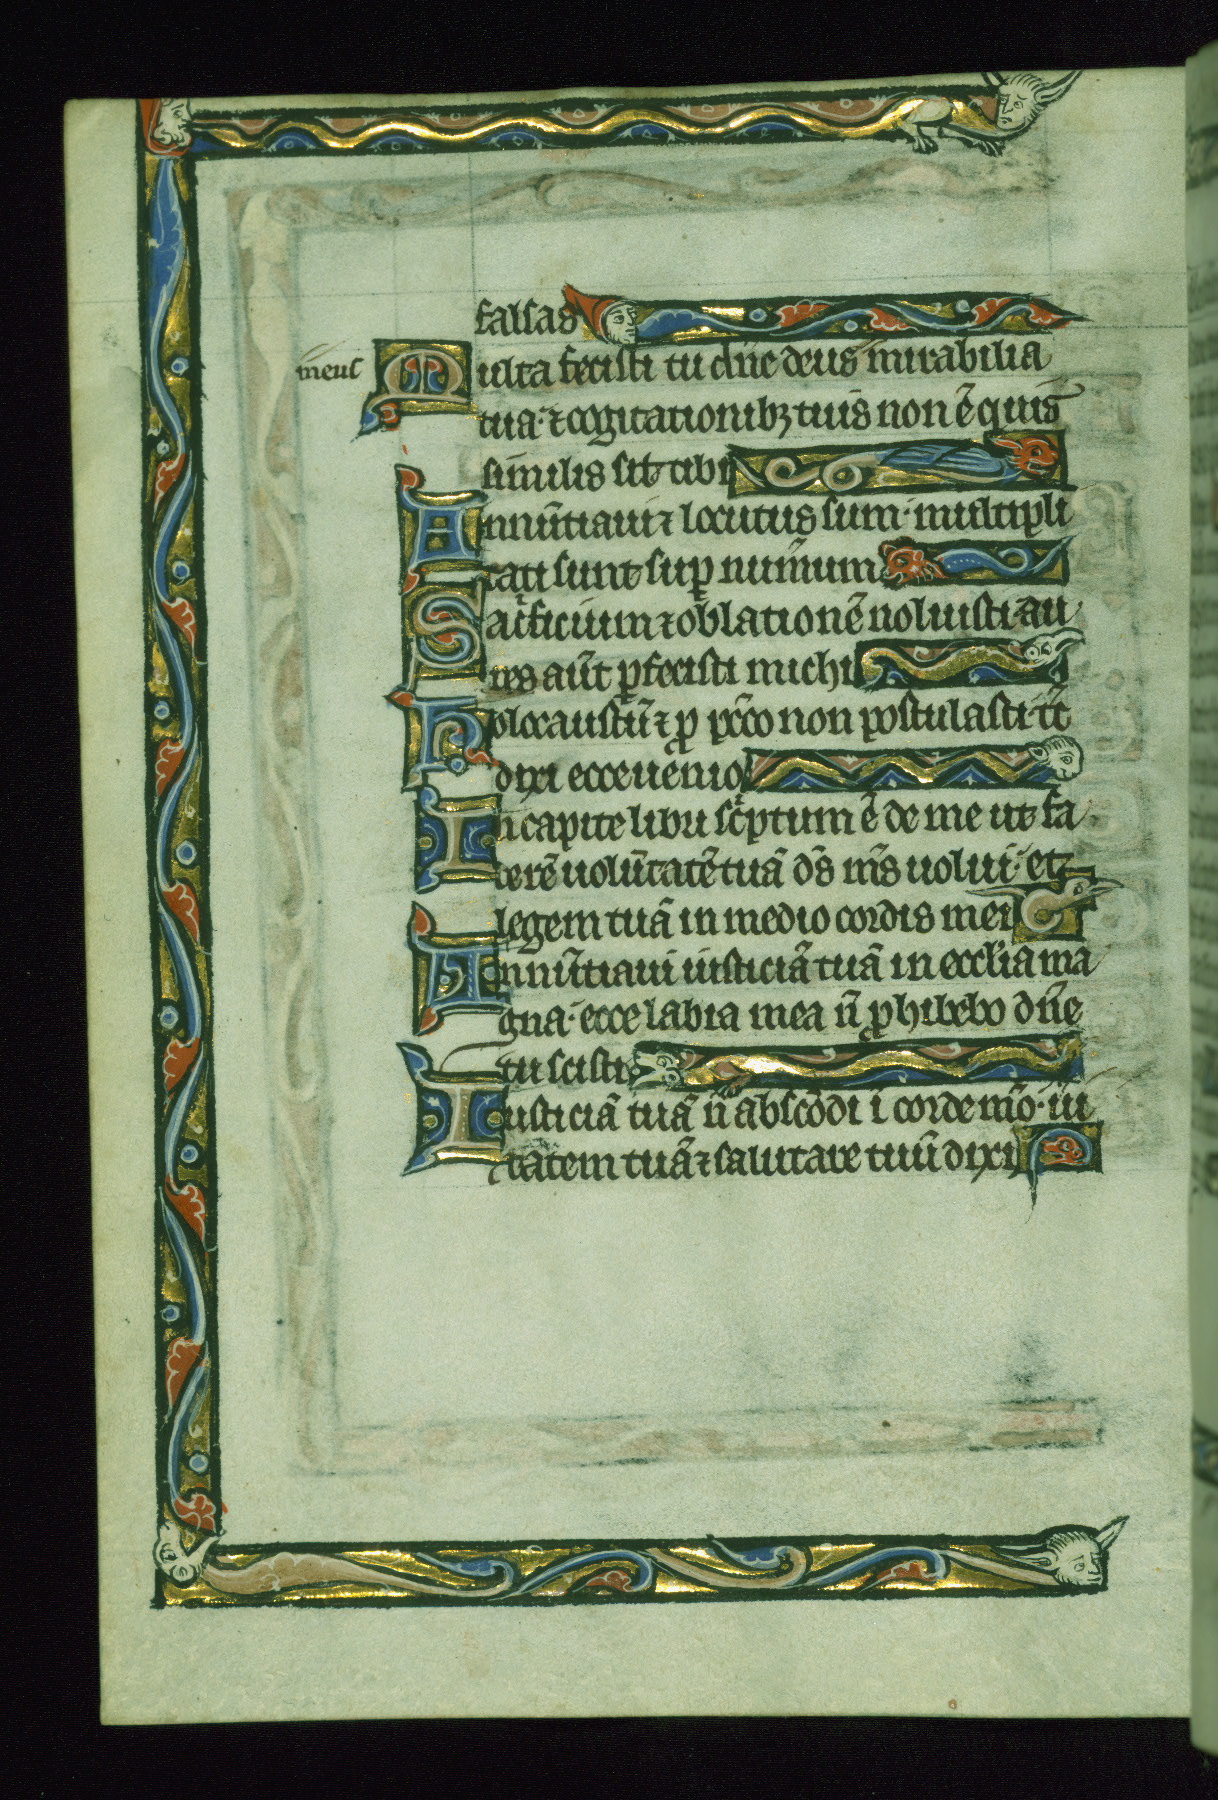 falsas
meus
Multa fecisti tu dñe deus mirabilia
tua· ⁊ cogitationibꝫ tuis non ē quis
similis sit tibi
Annūtiaui ⁊ locutus sum· multipli
cati sunt suꝑ numerum
Sacͥficium ⁊ oblationē noluisti· au
res aūt ꝑfecisti michi
Holocaustū ⁊ ꝓ pcc̄o non postulasti tc̄
dixi ecce uenio
In capite libri scͥptum ē de me ut fa
cerē uolūtatē tuā ds̄ ms̄ uolui· et
legem tuā in medio cordis mei
Annūtiaui iusticiā tuā in eccl'ia ma
gna· ecce labia mea ñ ꝓhibebo dñe
tu scisti
Iusticiā tuā ñ abscōdi ī corde mō· ui
tatem tuā ⁊ salutare tuū dixi